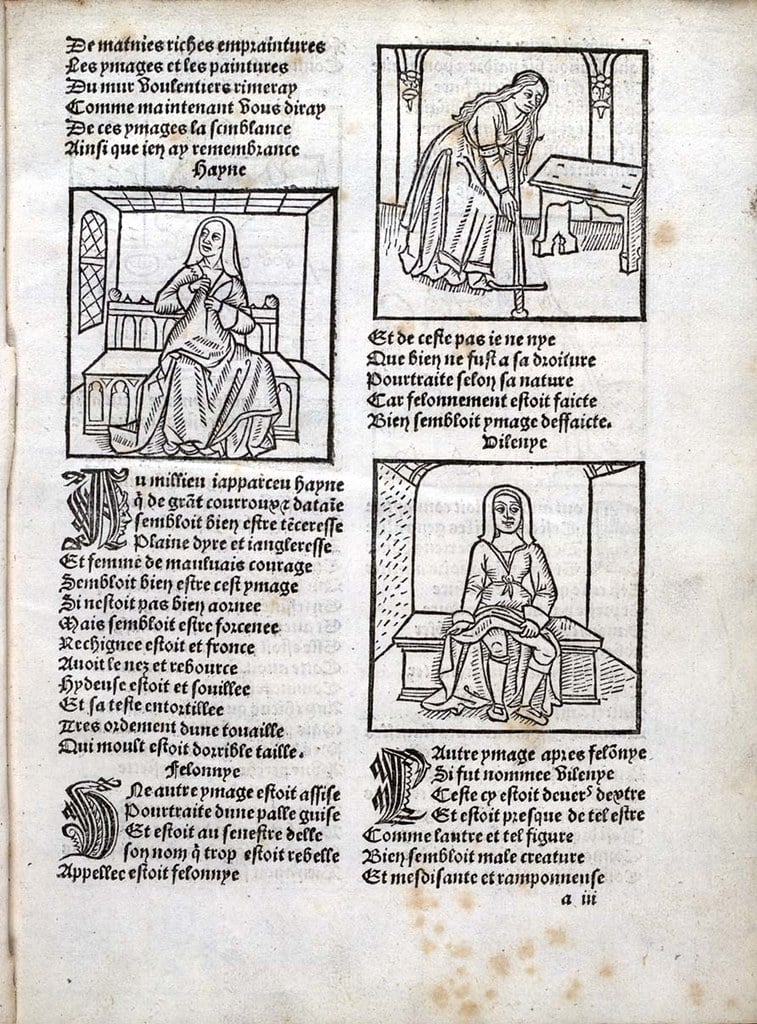 De maintes riches empraintures
Les ymages et les paintures
Du mur voulentiers rimeray
Comme maintenant vous diray
De ces ymages la semblance
Ainsi que ien ay remembrance
Hayne
Au millieu iapparceu hayne
q̃ de grãt courroux ⁊ dataïe
sembloit bien estre tẽceresse
Plaine dyre et iangleresse
Et femme de mauluais courage
Sembloit bien estre cest ymage
Si nestoit pas bien aornee
Mais sembloit estre forcenee
Rechignee estoit et fronce
Auoit le nez et rebource
Hydeuse estoit et souillee
Et sa teste entortillee
Tres ordement dune touaille
Qui moult estoit dorrible taille.
Felonnye
Vne autre ymage estoit assise
Pourtraite dune palle guise
Et estoit au senestre delle
son nom q̃ trop estoit rebelle
Appellee estoit felonnye
Et de ceste pas ie ne nye
Que bien ne fust a sa droiture
Pourtraite selon sa nature
Car felonnement estoit faicte
Bien sembloit ymage deffaicte.
Vilenye
L Autre ymage apres felõnye
Si fut nommee vilenye
Ceste cy estoit deuers dextre
Et estoit presque de tel estre
Comme lautre et tel figure
Bien sembloit male creature
Et mesdisante et ramponneuse
a iii